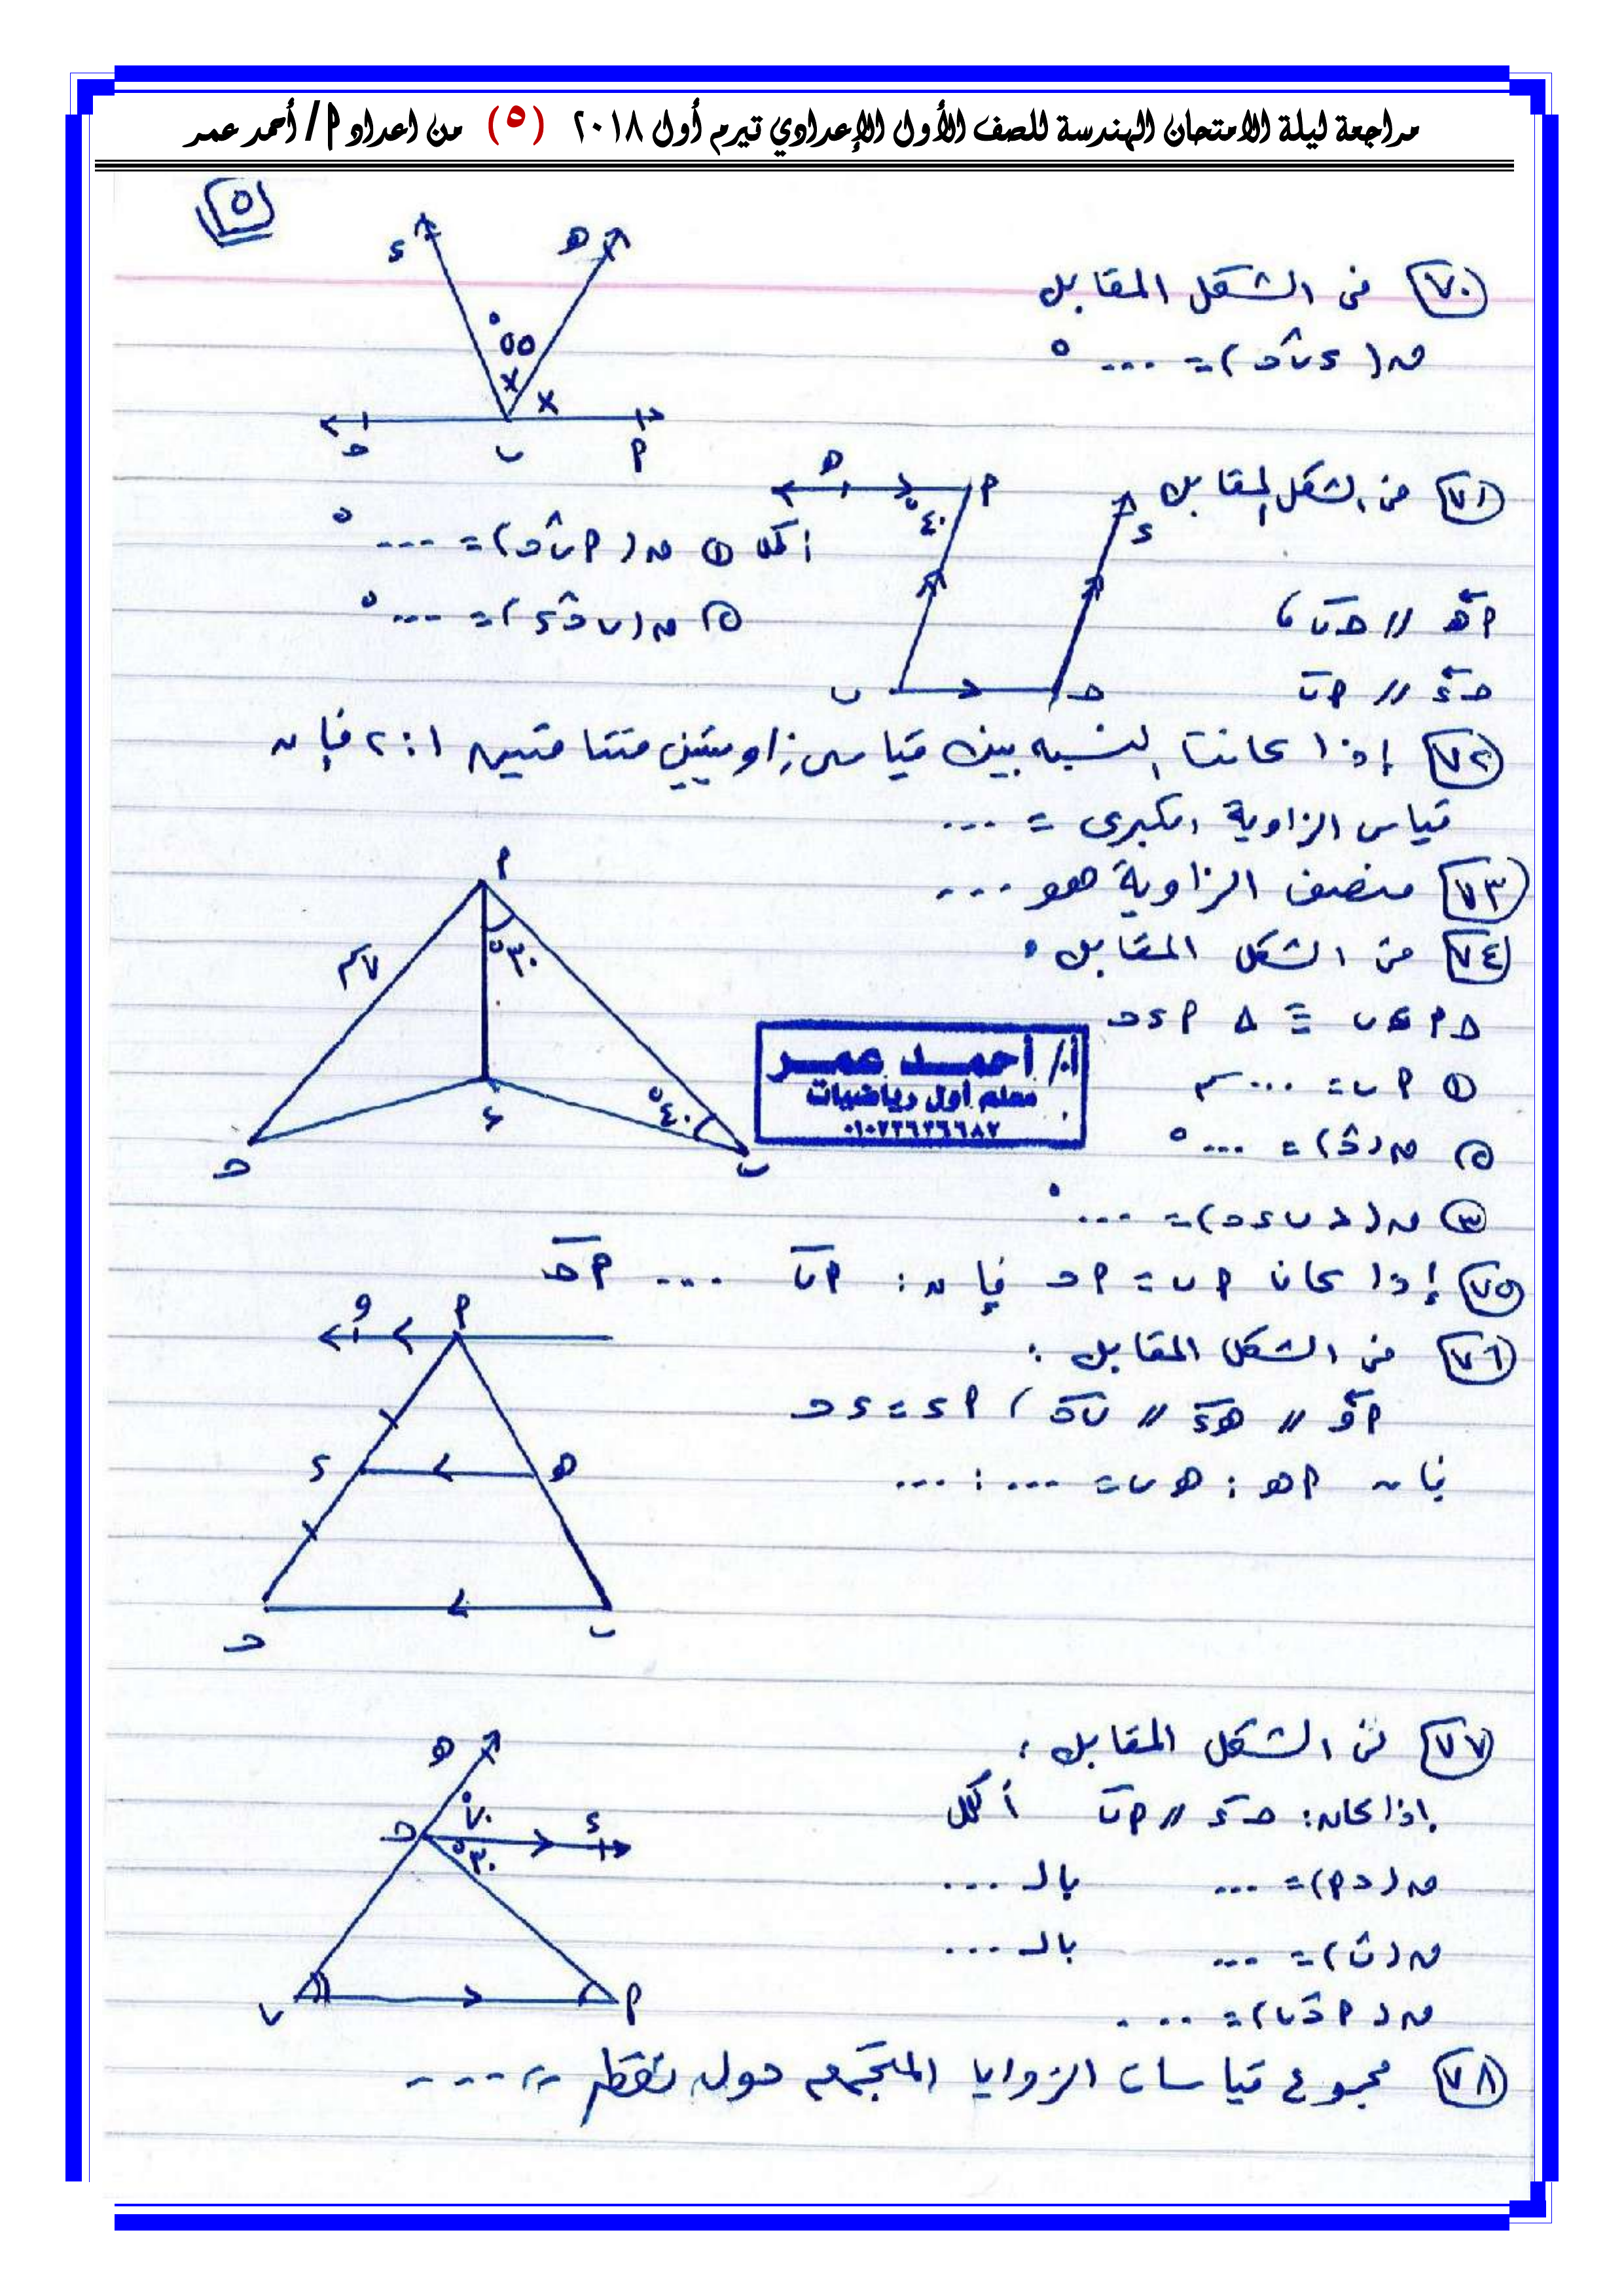 مراجعة ليلة الامتحان الهندسة للصف الأول الإعدادي تيرم أول ٢٠١٨ (٥) من اعداد أ / أحمد عمر
٥
٧٠ فى الشكل المقابل
ق( د ب̂ ح ) = ... °
د هـ
٥٥°
× ×
ح ب أ
٧١ فى الشكل المقابل
أ هـ // ح ب ،
ح د // أ ب
أكمل ① ق( أ ب̂ ح ) = ... °
② ق( ب ح̂ د ) = ... °
هـ أ د
٤٠°
ب ح
٧٢ إذا كانت النسبه بين قياسى زاويتين متتامتين ١ : ٢ فإن
قياس الزاوية الكبرى = ...
٧٣ منصف الزاوية هو ...
٧٤ فى الشكل المقابل :
Δ أ د ب ≡ Δ أ د ح
① أ ب = ... سم
② ق( ح̂ ) = ... °
③ ق( > ب د ح ) = ... °
أ
٧سم ٣٠°
٤٠°
ح د ب
أ/ أحمد عمر
معلم أول رياضيات
٧٥ إذا كان أ ب = أ ح فإن : أ ب ... أ ح
٧٦ فى الشكل المقابل :
أ و // هـ د // ب ح ، أ د = د ح
فإن أ هـ : هـ ب = ... : ...
و أ
د هـ
ح ب
٧٧ فى الشكل المقابل :
إذا كان : ح د // أ ب أكمل
ق( > أ ) = ... بالـ ...
ق( ب̂ ) = ... بالـ ...
ق( أ ح̂ ب ) = ....
هـ
٧٠° د
ح ٣٠°
ب أ
٧٨ مجموع قياسات الزوايا المتجمعه حول نقطه = ....